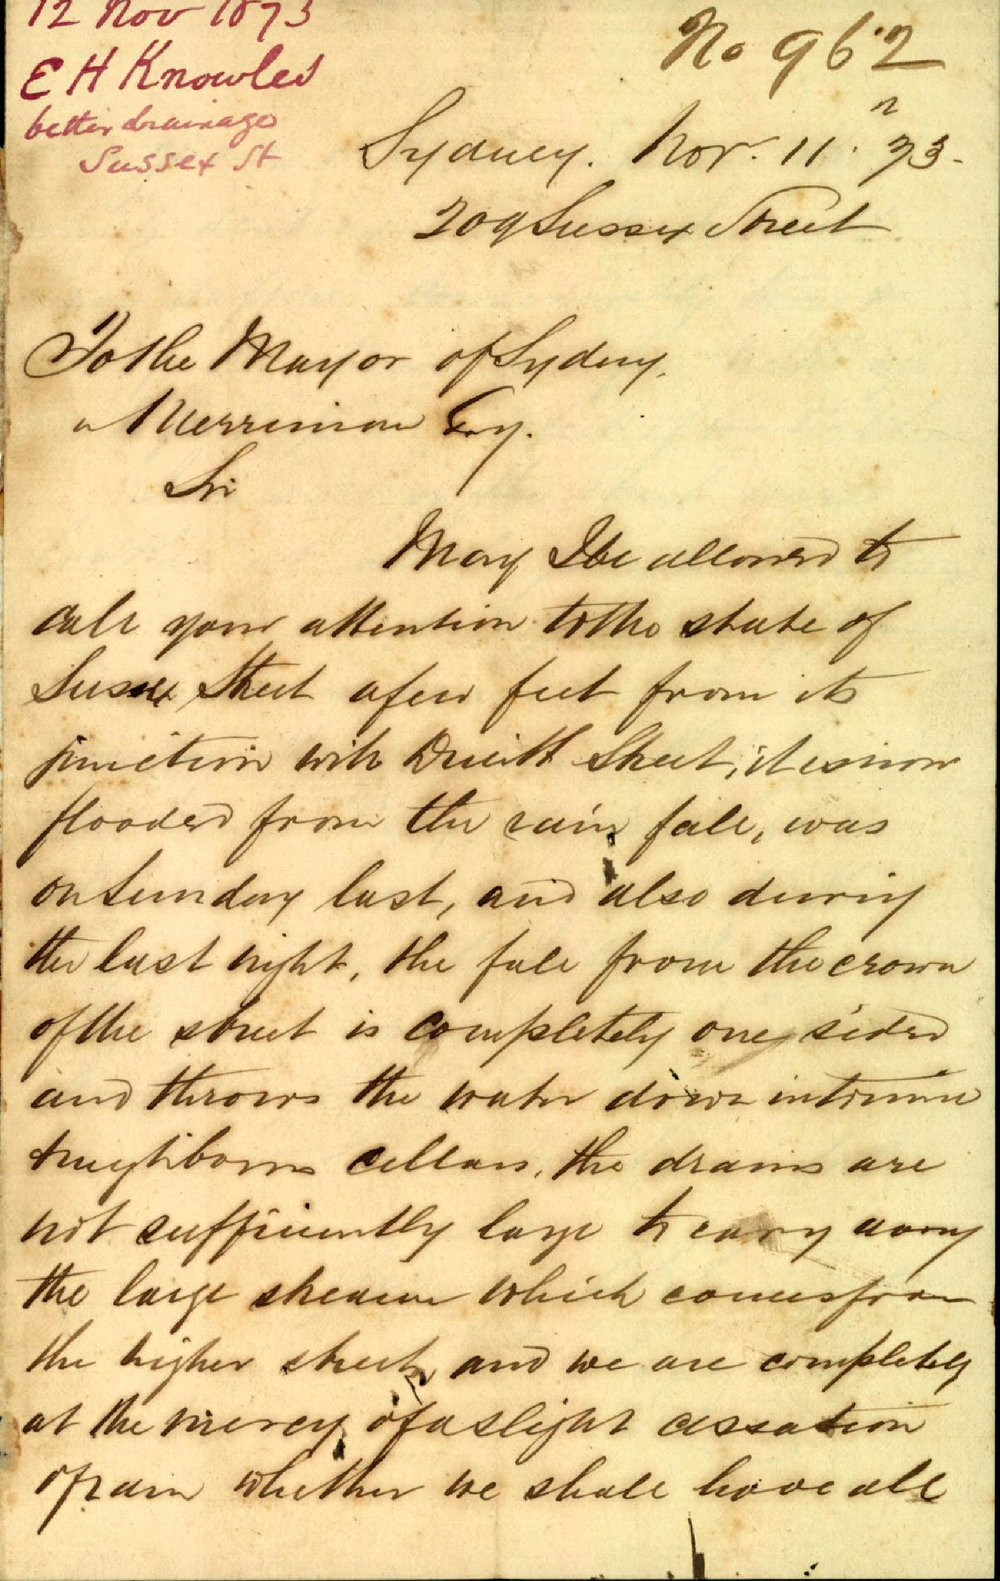 12 Nov 1873
E H Knowles
better drainage
Sussex St
No 962
Sydney. Nov. 11. 73.
209 Sussex Street
To the Mayor of Sydney.
Merriman Esq.
Sir
May I be allowed to
call your attention to the state of
Sussex Street a few feet from its
junction with Druitt Street, it is now
flooded from the rain fall, was
on Sunday last, and also during
the last night, the fall from the crown
of the street is completely one sided
and throws the water down into mine
& neighbours cellars, the drains are
not sufficiently large to carry away
the large stream which comes from
the higher street, and we are completely
at the mercy of a slight cessation
of rain whether we shall have all